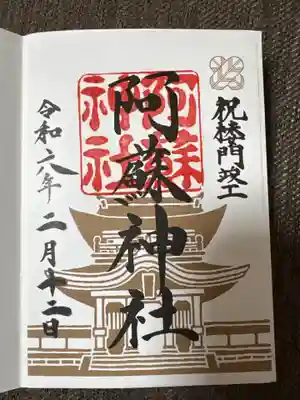 祝楼門竣工
阿蘇神社
阿蘇神社
令和六年二月十二日